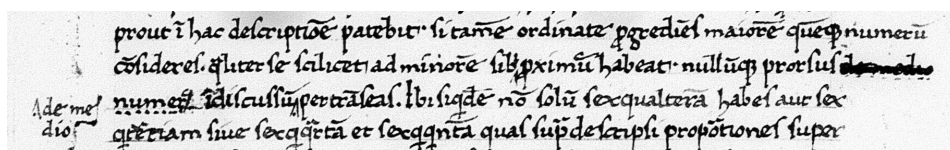 prout ī hac descriptiōe patebit si tam̄e ordinate ꝓgrediēs maiorē quēq; numerū
cōsideres. qͣliter se scilicet ad minorē sibi ꝓximū habeat. nullūq; prorsus
numerū īdiscussū ꝑtrāseas. Ibi siqͥdē nō solū sexqualterā habes aut sex
qͥtertiam siue sexqͥqͣrtā et sexqͥqͥntā quas suꝑdescripsi propōtiones super